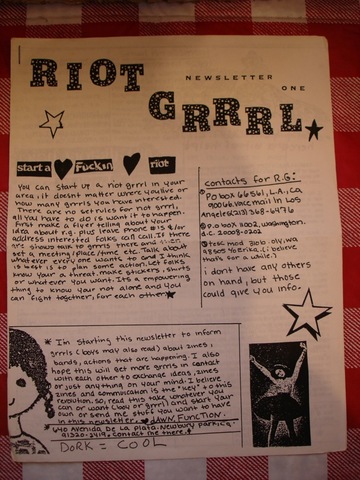 RIOT
NEWSLETTER
ONE
GRRRL
start a Fuckin riot
You can start up a riot grrrl in your
area, it doesn't matter where you live or
how many grrrls you have interested.
There are no set rules for riot grrrl,
all you have to do is want it to happen.
First make a flyer telling about your
idea about r.g. plus leave phone #'s &/or
address interested folks can call. If there
are shows talk to grrrls there and
set a meeting/place/time etc. Talk about
whatever every one wants to and I think
it best is to plan some action. Let folks
know your a threat. make stickers, shirts
or whatever you want. Its a empowering
thing to know your not alone and you
can fight together, for each other
contacts for R.G:
PO box 66561, L.A., ca
90066. Voice mail in Los
Angeles (213) 368-6476
P.O. box 11002, Washington,
d.c. 20008-0202
Tesc mod 306b. oly, wa
98505 % Erika. (i believe
thats for a while.)
i dont have any others
on hand, but those
could give you info.
I'm starting this newsletter to inform
grrrls (boys may also read) about zines,
bands, actions that are happening. I also
hope this will get more grrrls in contact
with each other to exchange ideas, zines
or just anything on your mind. I believe
zines and communication is the "key" to this
revolution. so, read this, take whatever you
can or want (boy or grrrl) and start your
own or send me stuff you want to have
in this newsletter. DAWN. FUNCTION.
640 Avenida De La Plata. Newbury park, ca.
91320-3419. contact me there.
DORK = COOL